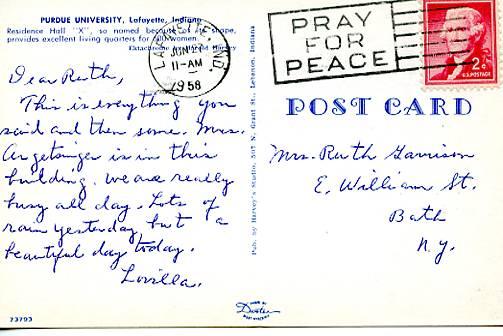 PURDUE UNIVERSITY, Lafayette, Indiana
Residence Hall "X", so named because of its shape,
provides excellent living quarters for all women.
Ektachrome by Harvey
LAFAYETTE, IND.
JUN
11-AM
1958
PRAY
FOR
PEACE
2¢
U.S. POSTAGE
POST CARD
Dear Ruth,
This is everything you
said and then some. Mrs.
Argetsinger is in this
building. We are really
busy all day. Lots of
rain yesterday but a
beautiful day today.
Lovilla.
Pub. by Harvey's Studio, 507 N. Grant St., Lebanon, Indiana
Mrs. Ruth Garrison
E. William St.
Bath
N.Y.
73793
MADE BY
Dexter
WEST NYACK, N.Y.